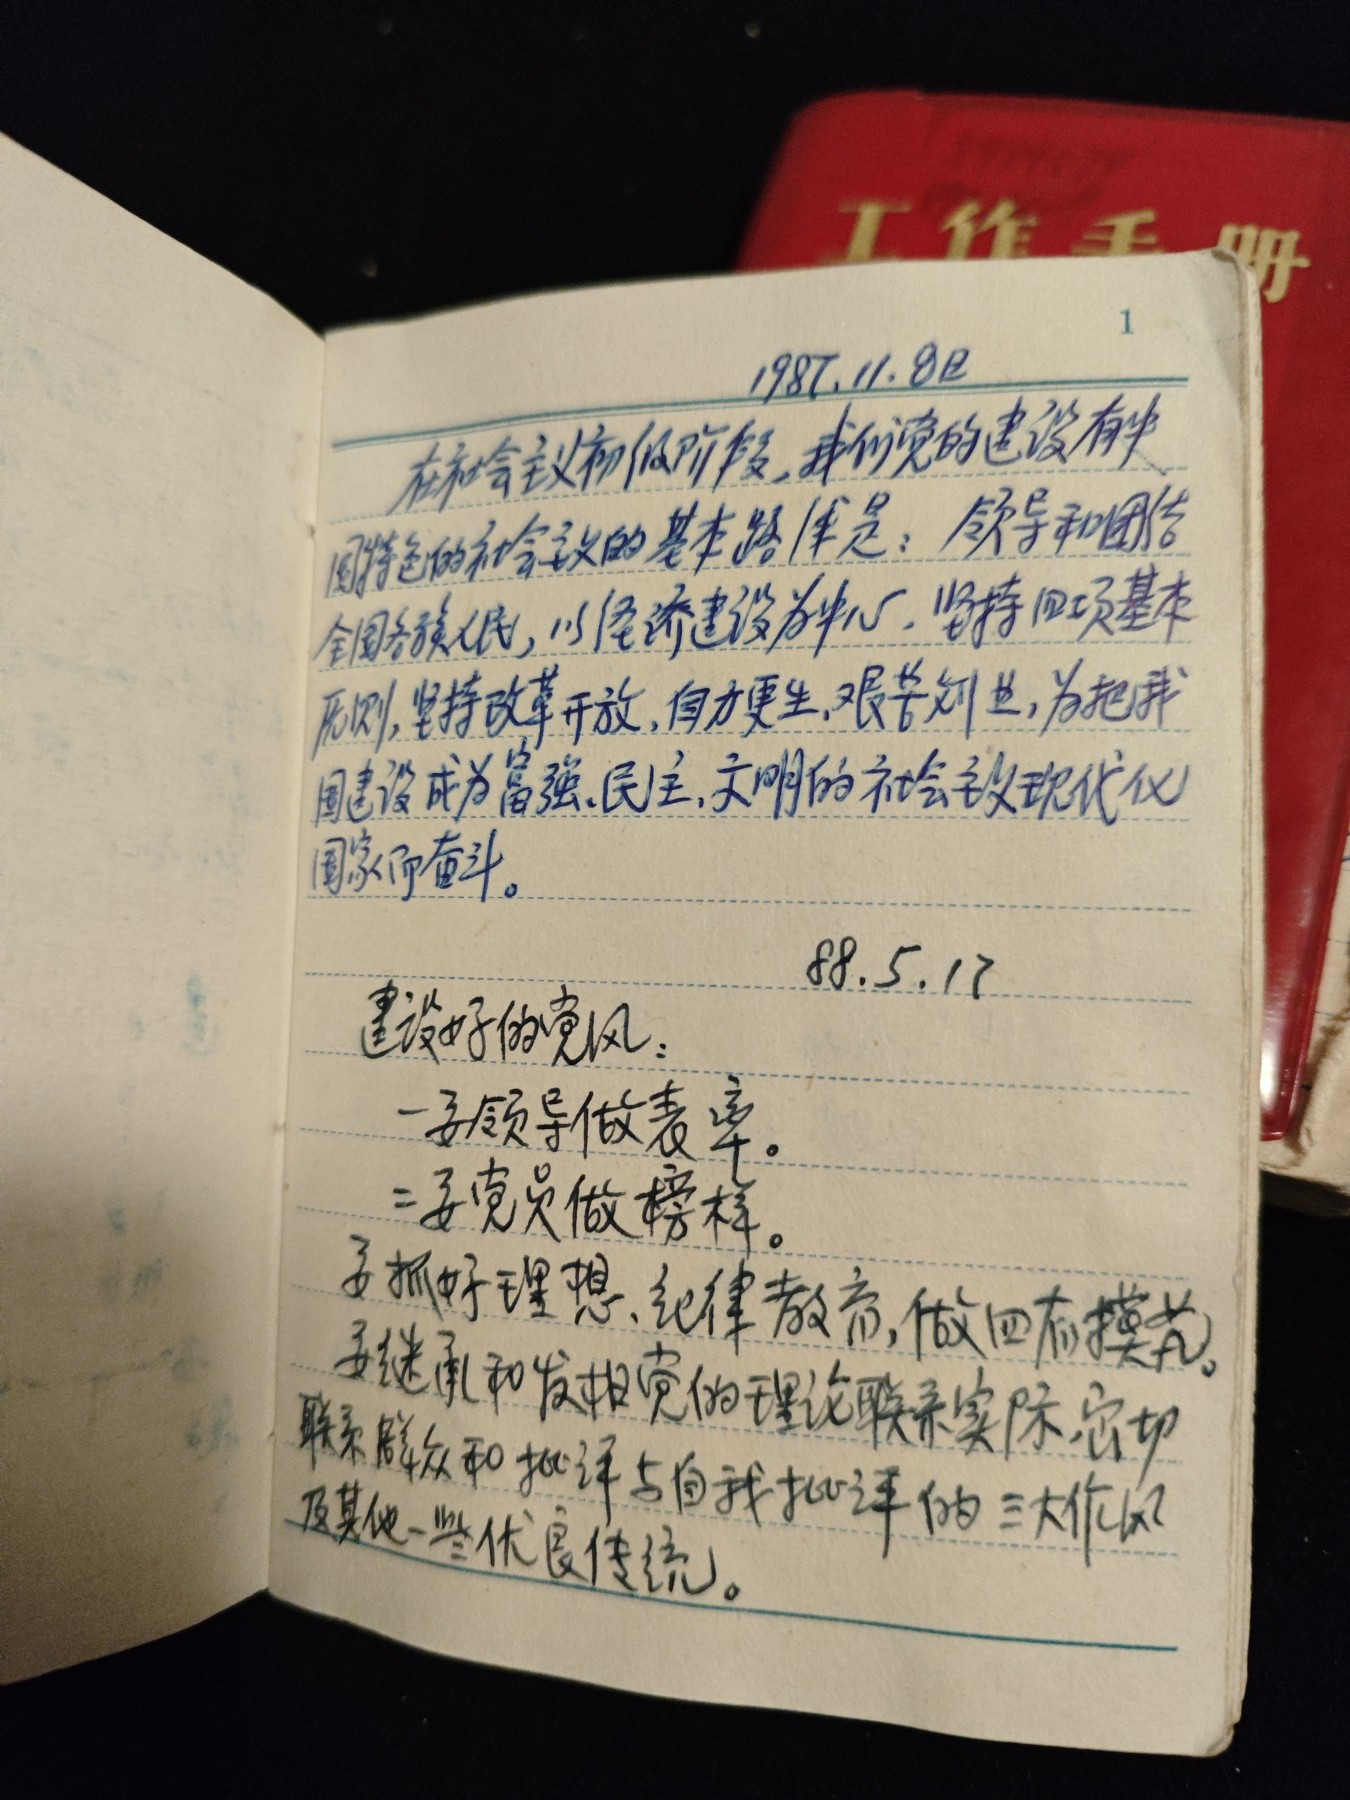 工作手册
1
1987.11.8日
在社会主义初级阶段，我们党的建设有中
国特色的社会主义的基本路线是：领导和团结
全国各族人民，以经济建设为中心，坚持四项基本
原则，坚持改革开放，自力更生、艰苦创业，为把我
国建设成为富强、民主、文明的社会主义现代化
国家而奋斗。
88.5.17
建设好的党风：
一要领导做表率。
二要党员做榜样。
要抓好理想、纪律教育，做四有模范。
要继承和发扬党的理论联系实际、密切
联系群众和批评与自我批评的三大作风
及其他一些优良传统。